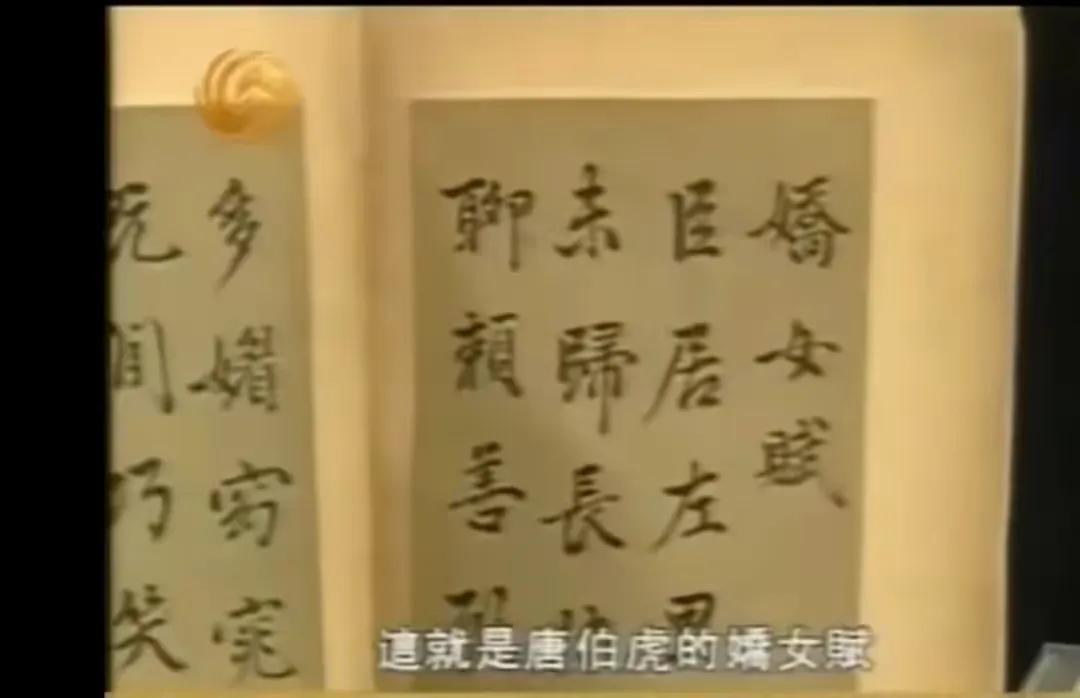 嬌女賦
臣居左
未歸長
聊賴善
多媚窈窕
既閒巧笑
這就是唐伯虎的嬌女賦